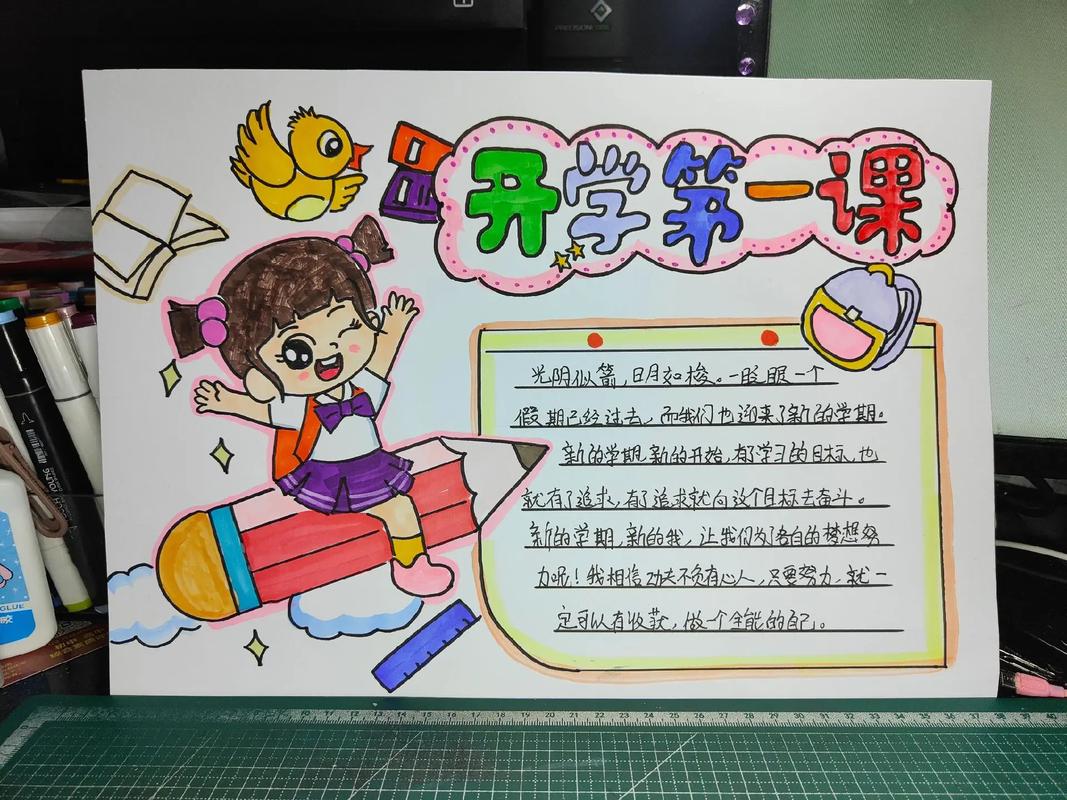 开学第一课
光阴似箭，日月如梭。一眨眼一个
假期已经过去，而我们也迎来了新的学期。
新的学期，新的开始，有了学习的目标，也
就有了追求，有了追求就向这个目标去奋斗。
新的学期，新的我，让我们为各自的梦想努
力呢！我相信功夫不负有心人，只要努力，就一
定可以有收获，做一个全能的自己。
GLUE